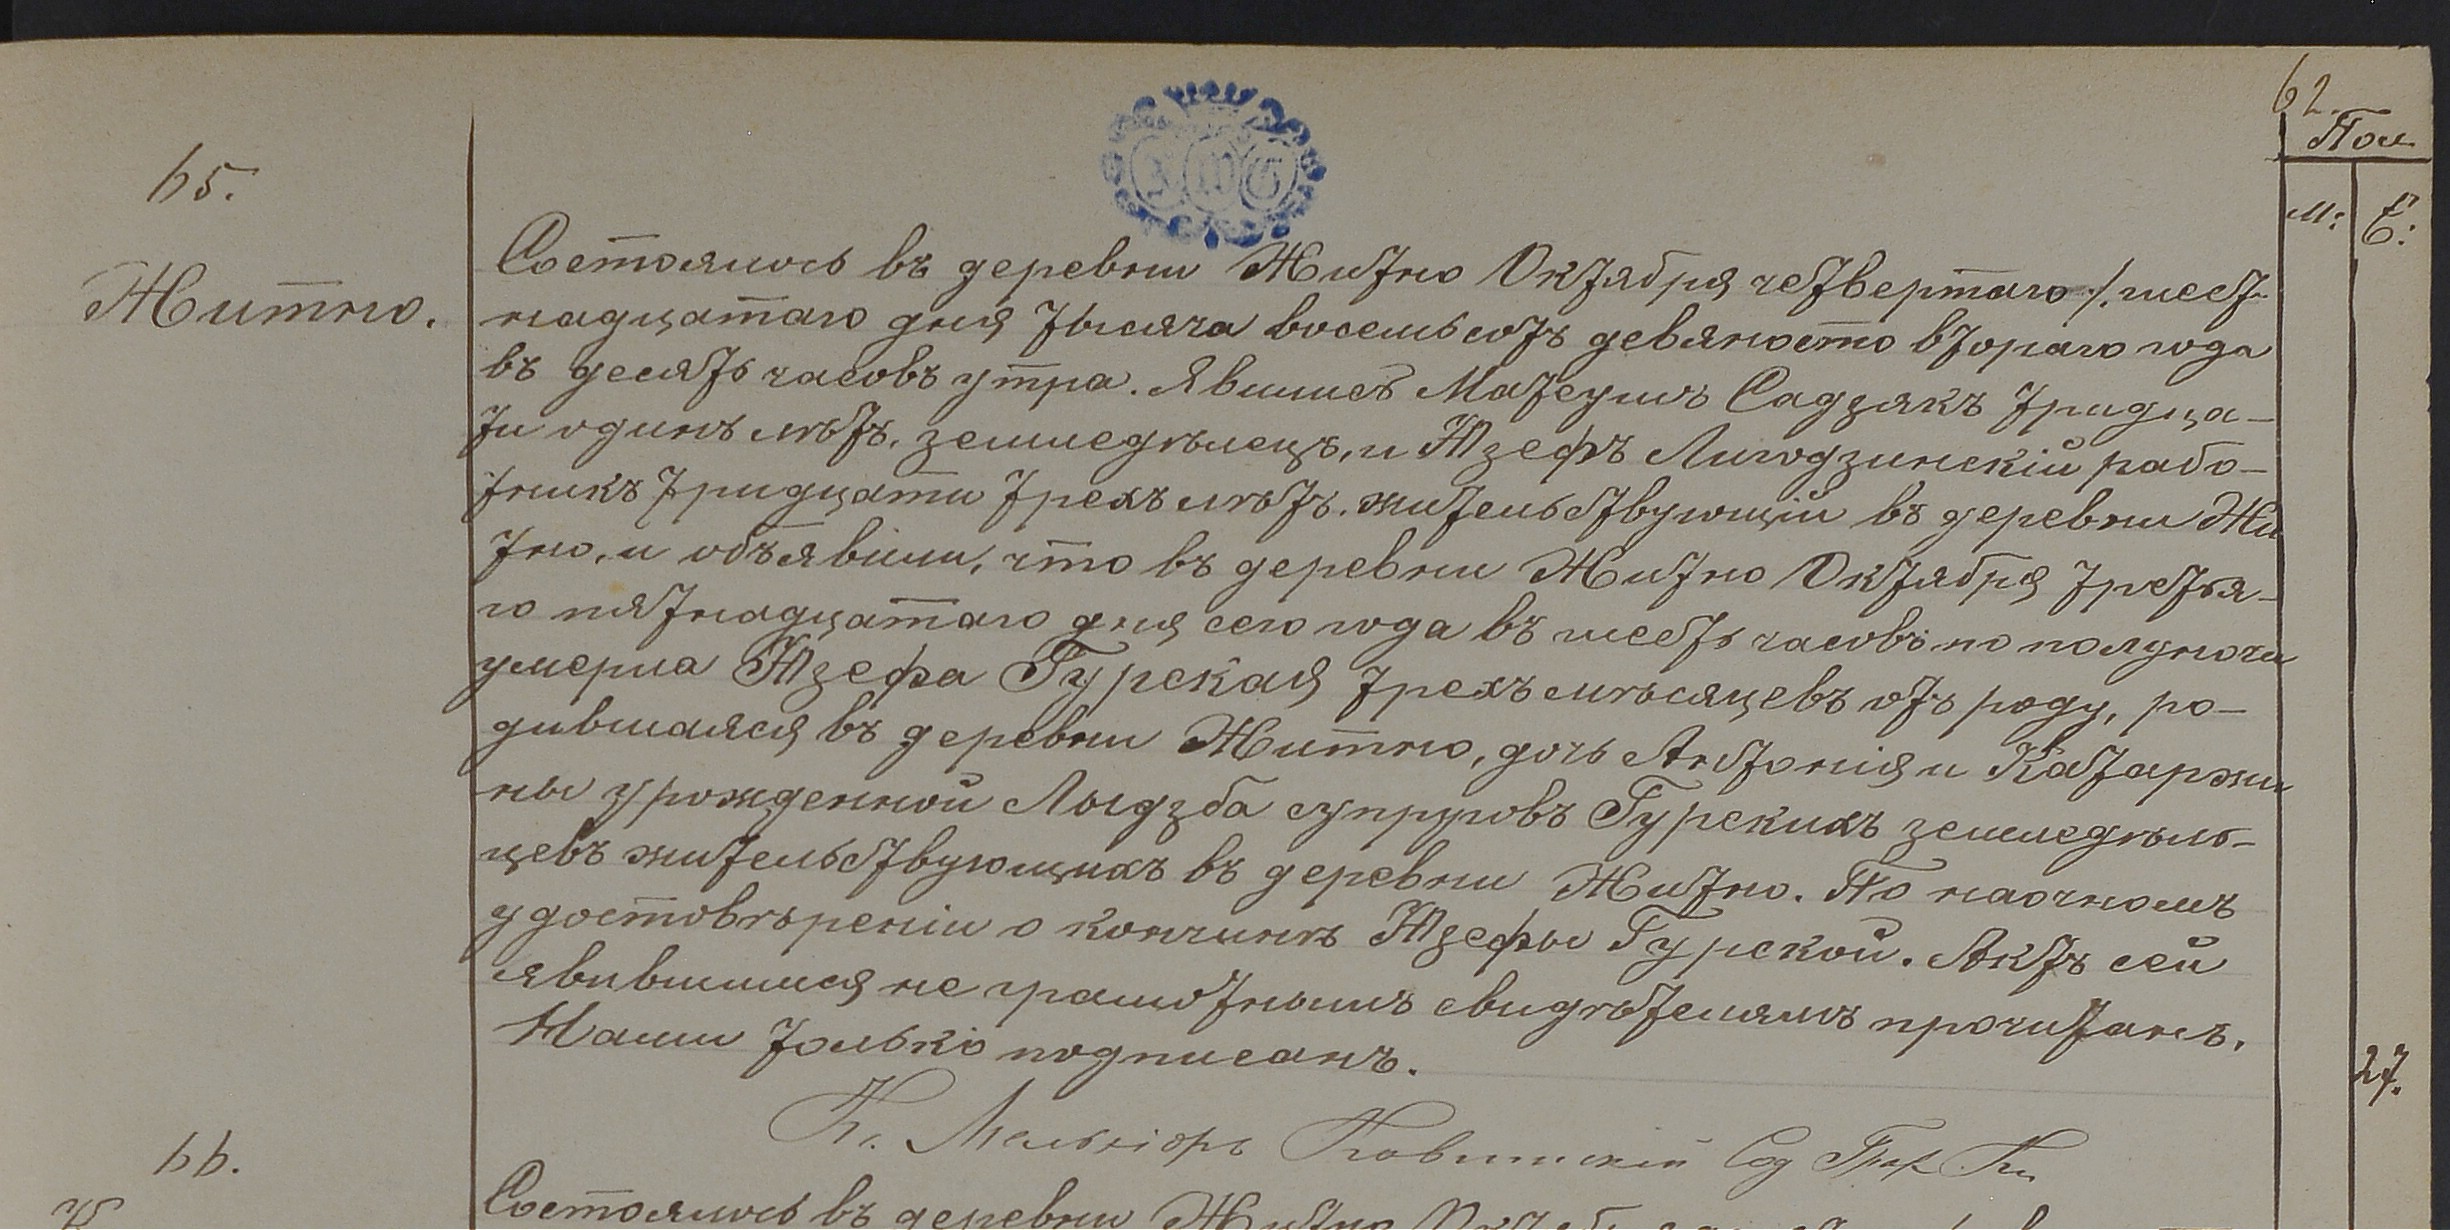 62.
Пол
М: Ж:
65.
Житно.
Состоялось въ деревни Житно Октября четвертаго /. шест
надцатаго дня тысяча восемьсотъ девяносто втораго года
въ десять часовъ утра. Явились Матеушъ Садзякъ тридца-
ти одинъ лѣтъ, земледѣлецъ, и Юзефъ Лигодзинскій рабо-
тникъ тридцати трехъ лѣтъ. жительствующій въ деревни Жи
тно, и объявили, что въ деревни Житно Октября третья-
го пятнадцатаго дня сего года въ шесть часовъ по полуночи
умерла Юзефа Гурская трехъ мѣсяцевъ отъ роду, ро-
дившаяся въ деревни Житно, дочь Антонія и Катаржи
ны урожденной Лыдзба супруговъ Гурскихъ земледѣль-
цевъ жительствующихъ въ деревни Житно. По наочномъ
удостовѣреніи о кончинѣ Юзефы Гурской. Актъ сей
явившимся не грамотнымъ свидѣтелямъ прочитанъ,
Нами только подписанъ.
27.
К. Мельхіоръ
66.
Состоялось въ деревни Житно